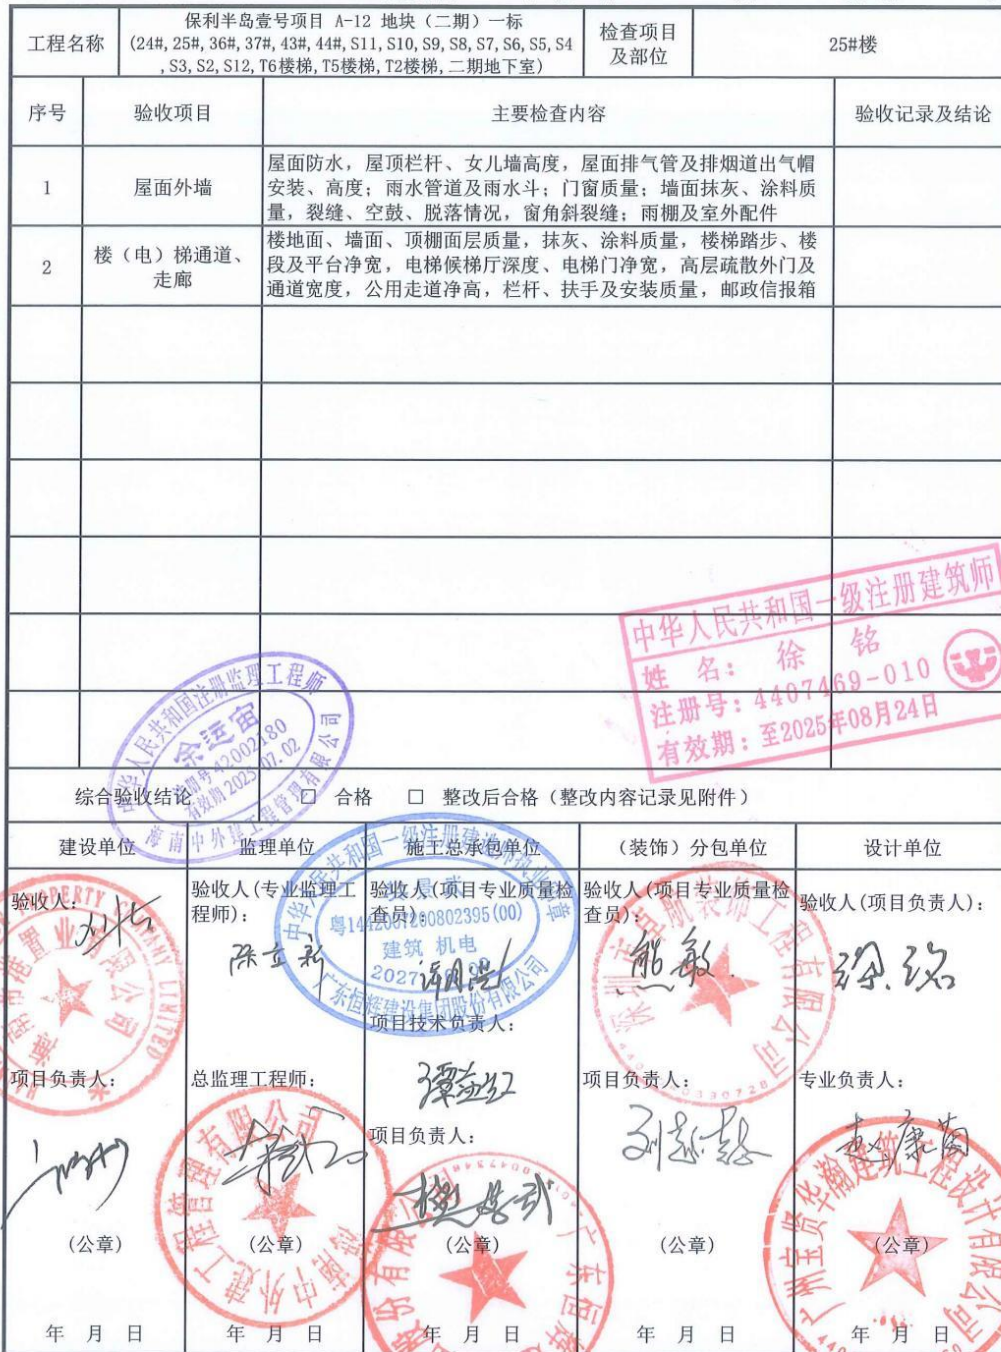 工程名称
保利半岛壹号项目 A-12 地块（二期）一标
(24#,25#,36#,37#,43#,44#,S11,S10,S9,S8,S7,S6,S5,S4
,S3,S2,S12,T6楼梯,T5楼梯,T2楼梯,二期地下室)
检查项目
及部位
25#楼
序号 验收项目 主要检查内容 验收记录及结论
1 屋面外墙
屋面防水，屋顶栏杆、女儿墙高度，屋面排气管及排烟道出气帽
安装、高度；雨水管道及雨水斗；门窗质量；墙面抹灰、涂料质
量，裂缝、空鼓、脱落情况，窗角斜裂缝；雨棚及室外配件
2 楼（电）梯通道、
走廊
楼地面、墙面、顶棚面层质量，抹灰、涂料质量，楼梯踏步、楼
段及平台净宽，电梯候梯厅深度、电梯门净宽，高层疏散外门及
通道宽度，公用走道净高，栏杆、扶手及安装质量，邮政信报箱
中华人民共和国一级注册建筑师
姓 名： 徐 铭
注册号：4407469-010
有效期：至2025年08月24日
中华人民共和国注册监理工程师
余运宙
注册号 42002180
有效期 2025.07.02
海南中外建工程管理有限公司
综合验收结论
□ 合格 □ 整改后合格（整改内容记录见附件）
建设单位 监理单位 施工总承包单位 （装饰）分包单位 设计单位
验收人：
验收人(专业监理工
程师)：
陈立新
验收人(项目专业质量检
查员)：
验收人(项目专业质量检
查员)：
熊敏
验收人(项目负责人)：
徐铭
建筑 机电
广东恒辉建设集团股份有限公司
项目技术负责人：
项目负责人：
总监理工程师：
项目负责人：
项目负责人：
专业负责人：
赵康南
海南中外建工程管理有限公司
广州宝贤华瀚建筑工程设计有限公司
(公章) (公章) (公章) (公章) (公章)
年 月 日 年 月 日 年 月 日 年 月 日 年 月 日